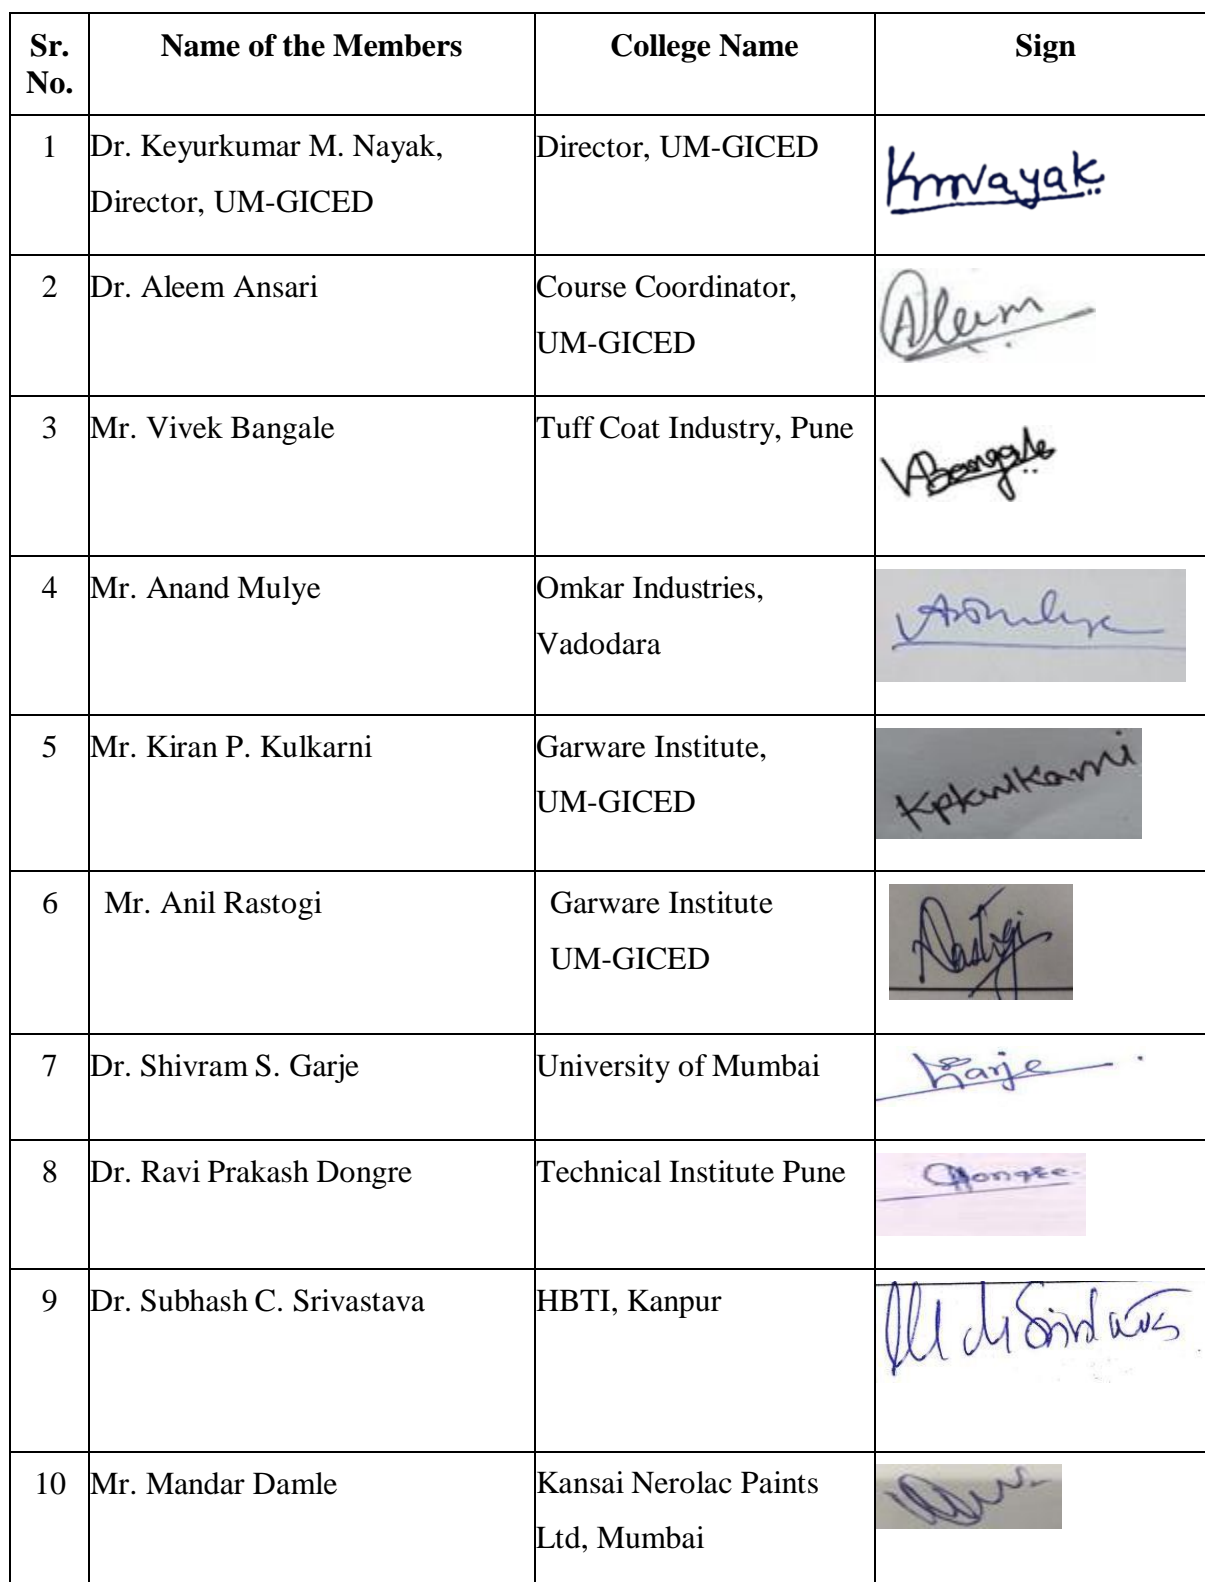 Sr. No. Name of the Members College Name Sign
1 Dr. Keyurkumar M. Nayak, Director, UM-GICED Kmnayak
Director, UM-GICED
2 Dr. Aleem Ansari Course Coordinator, Aleem
UM-GICED
3 Mr. Vivek Bangale Tuff Coat Industry, Pune VBangale
4 Mr. Anand Mulye Omkar Industries,
Vadodara
5 Mr. Kiran P. Kulkarni Garware Institute, Kpkulkarni
UM-GICED
6 Mr. Anil Rastogi Garware Institute Rastogi
UM-GICED
7 Dr. Shivram S. Garje University of Mumbai Garje
8 Dr. Ravi Prakash Dongre Technical Institute Pune Dongre
9 Dr. Subhash C. Srivastava HBTI, Kanpur
10 Mr. Mandar Damle Kansai Nerolac Paints
Ltd, Mumbai